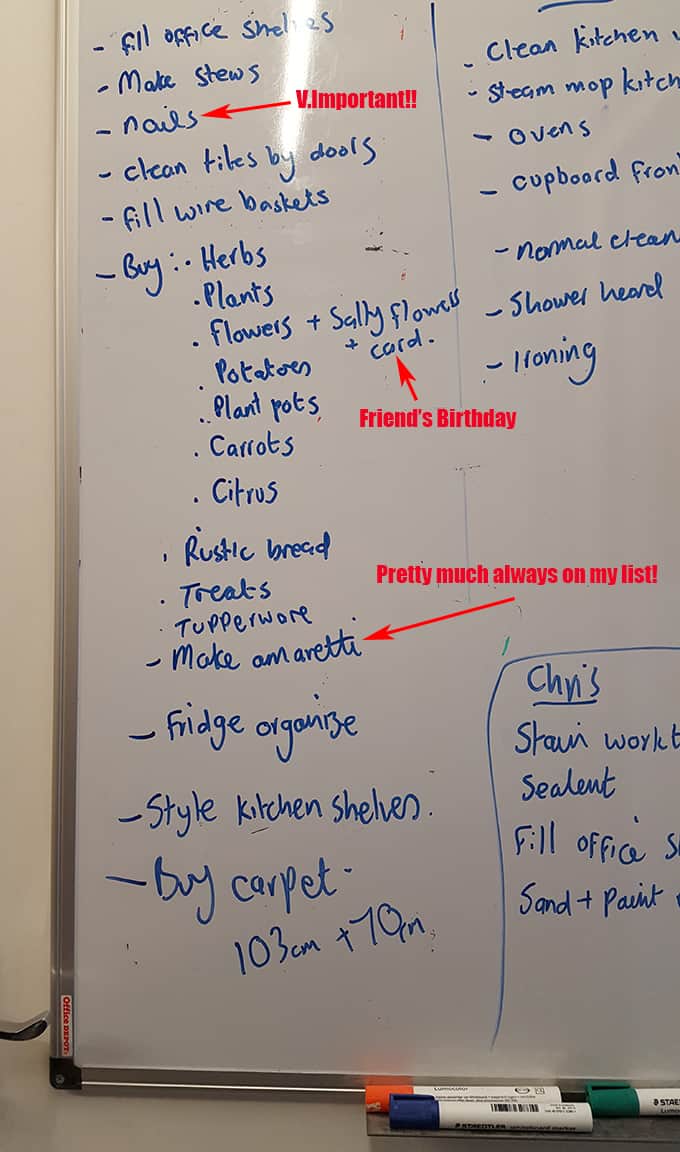 - fill office shelves
- Make stews
- nails
V.Important!!
- clean tiles by doors
- fill wire baskets
- Buy : . Herbs
. Plants
. Flowers + Sally flowers
+ card.
. Potatoes
Friend's Birthday
. Plant pots
. Carrots
. Citrus
. Rustic bread
. Treats
Pretty much always on my list!
. Tupperware
- Make amaretti
- Fridge organize
- Style kitchen shelves.
- Buy carpet-
103cm + 70cm
- Clean kitchen
- Steam mop kitch
- ovens
- cupboard fron
- normal clean
- Shower heard
- Ironing
Chris
Stain workt
Sealent
Fill office s
Sand + Paint
Office DEPOT
Lumocolor
STAEDTLER whiteboard marker
STAE
Lumoc